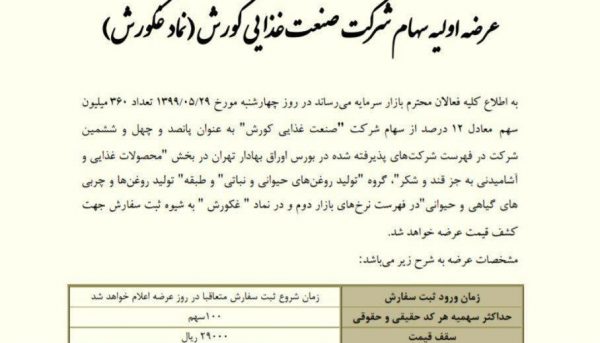 عرضه اولیه سهام شرکت صنعت غذایی کورش (نماد غکورش)
به اطلاع کلیه فعالان محترم بازار سرمایه می‌رساند در روز چهارشنبه مورخ ۱۳۹۹/۰۵/۲۹ تعداد ۳۶۰ میلیون
سهم معادل ۱۲ درصد از سهام شرکت "صنعت غذایی کورش" به عنوان پانصد و چهل و ششمین
شرکت در فهرست شرکت‌های پذیرفته شده در بورس اوراق بهادار تهران در بخش "محصولات غذایی و
آشامیدنی به جز قند و شکر"، گروه "تولید روغن‌های حیوانی و نباتی" و طبقه" تولید روغن‌ها و چربی
های گیاهی و حیوانی"در فهرست نرخ‌های بازار دوم و در نماد " غکورش " به شیوه ثبت سفارش جهت
کشف قیمت عرضه خواهد شد.
مشخصات عرضه به شرح زیر می‌باشد:
زمان ورود ثبت سفارش زمان شروع ثبت سفارش متعاقبا در روز عرضه اعلام خواهد شد
حداکثر سهمیه هر کد حقیقی و حقوقی ۱۰۰سهم
سقف قیمت ۲۹۰۰۰ ریال